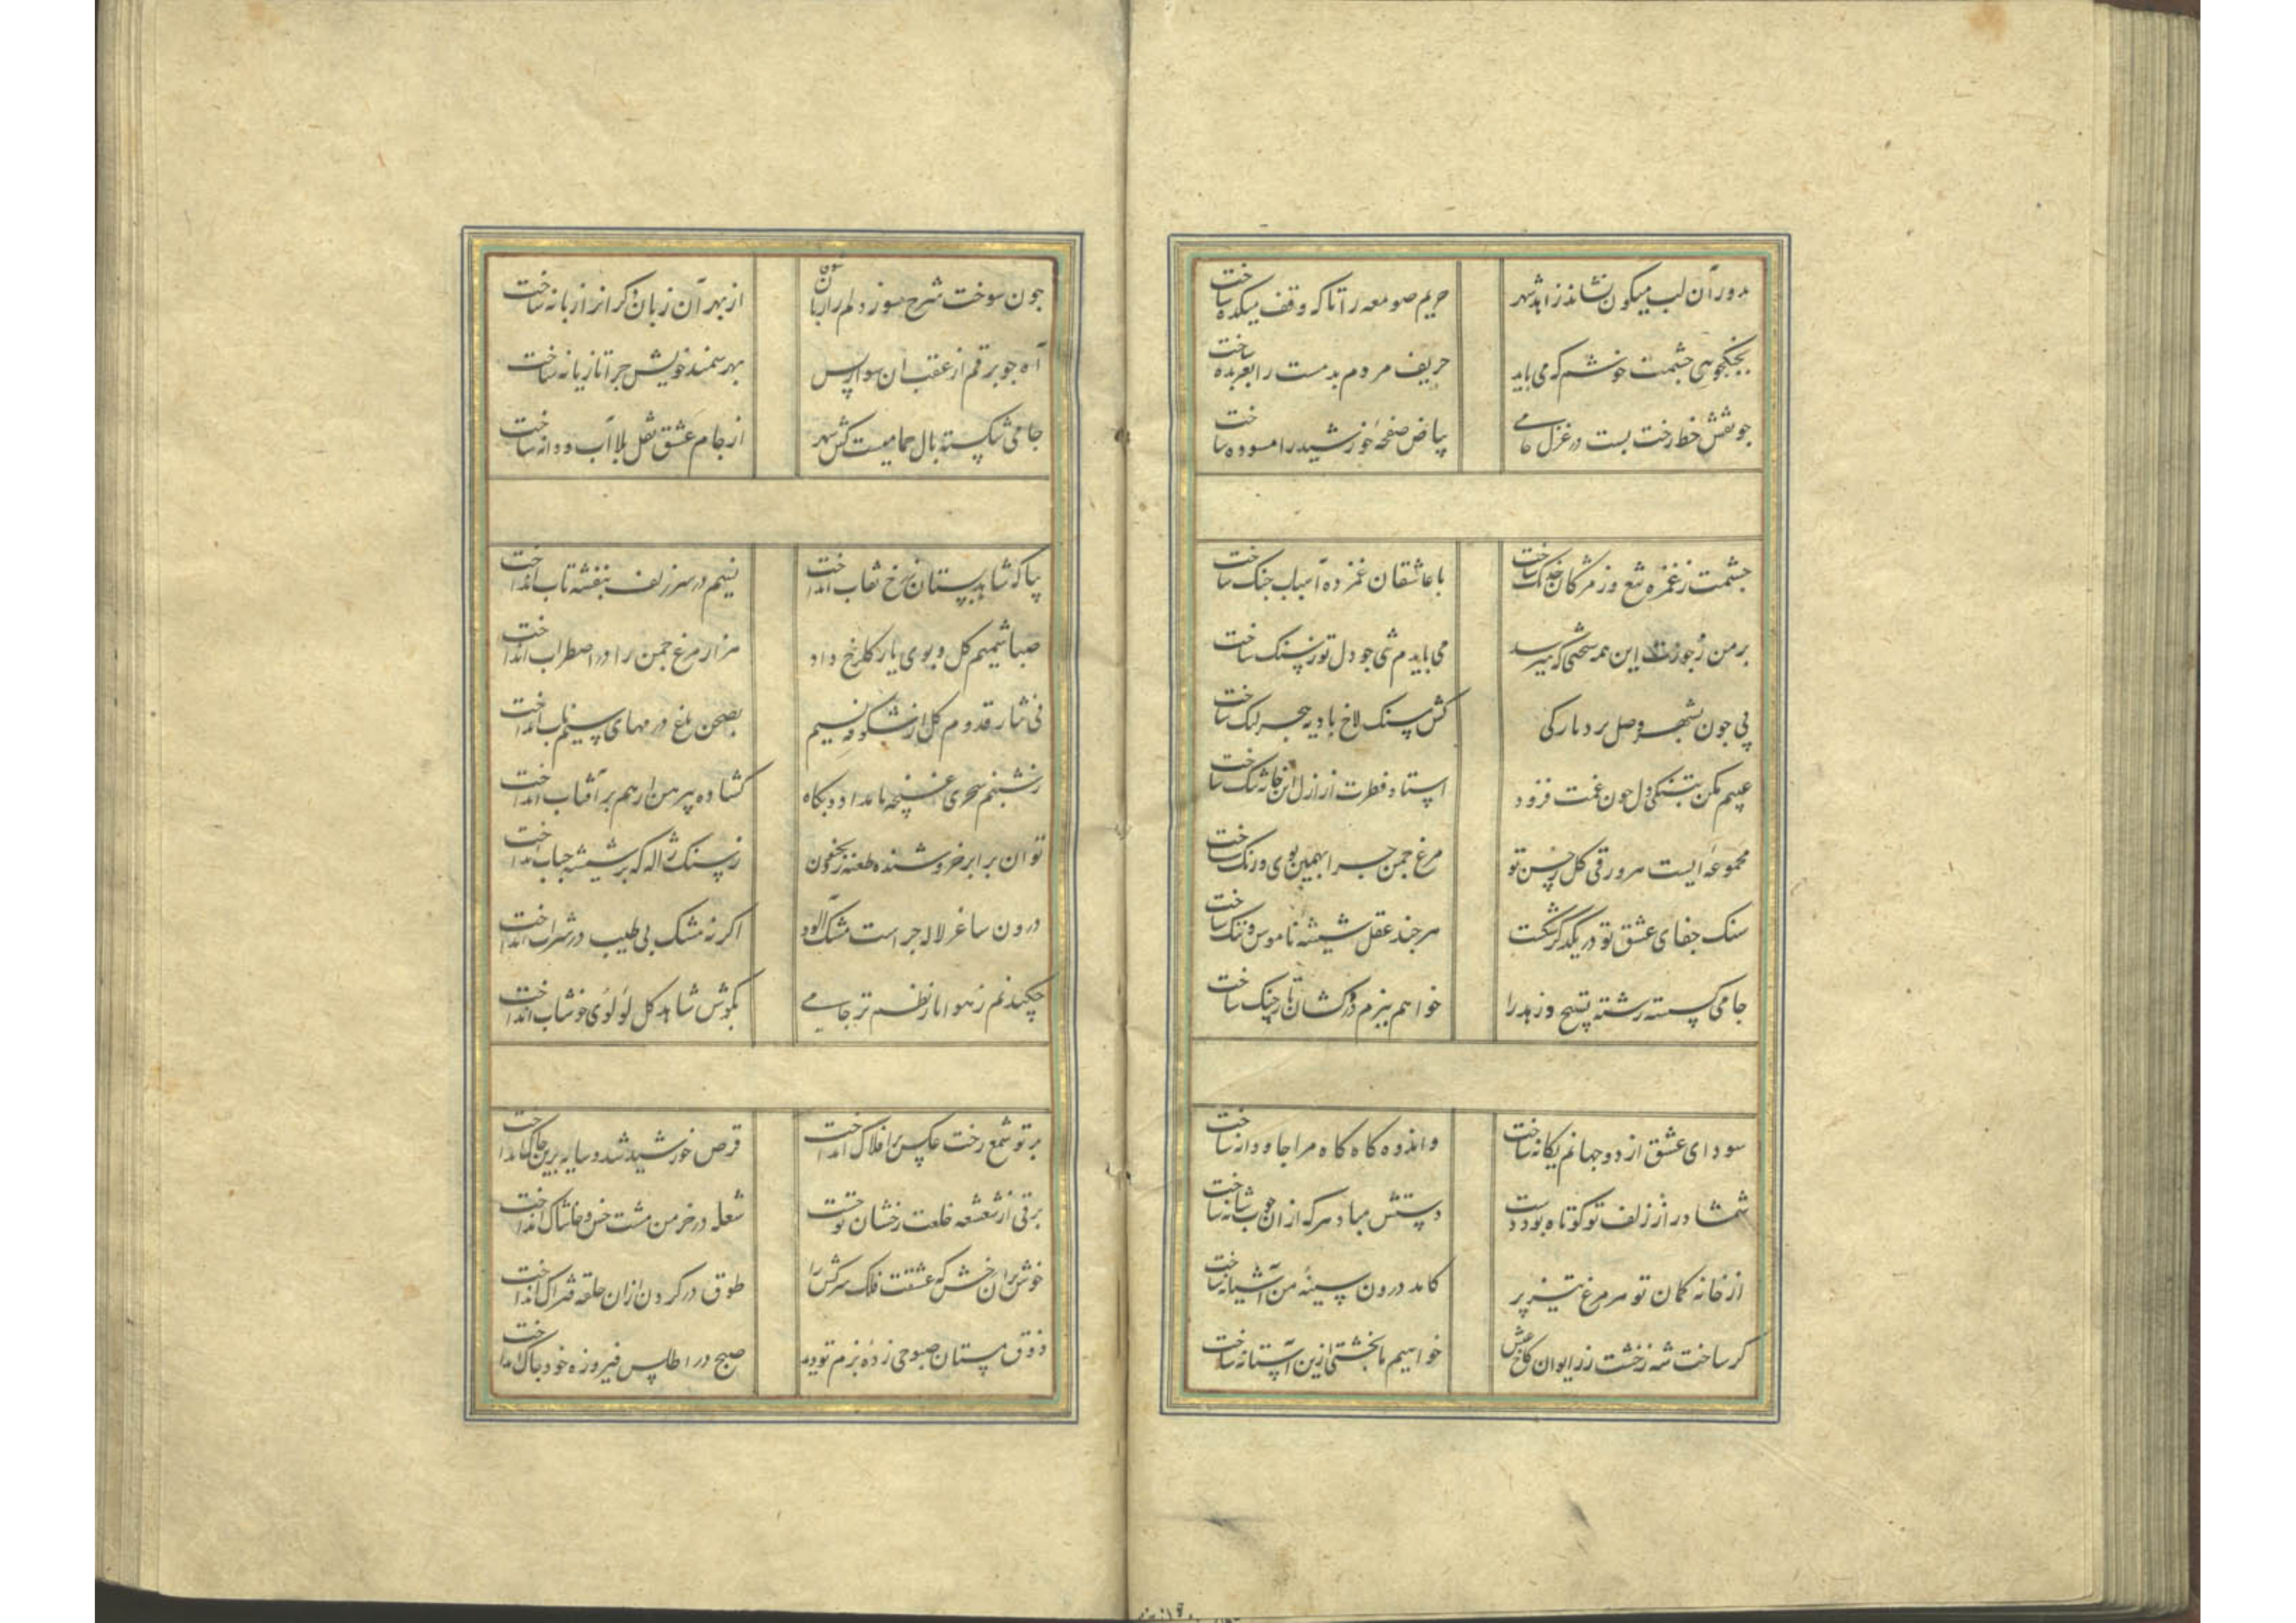 بدور آن لب میکون نشاند زاهد شهر حریم صومعه را تا که وقف میکده ساخت
بجنکجویی جشمت خوشم که می باید حریف مردم بدمست را بعربده ساخت
جو نقش خط رخت بست در غزل جامی بیاض صفحهٔ خورشید را مسوده ساخت
جشمت ز غمزه تیغ وز مژکان خدنک ساخت با عاشقان غمزده اسباب جنک ساخت
بر من ز جورت این همه سختی که میرسد می بایدم شی جو دل تو ز سنک ساخت
پی جون بشهر وصل برد بارکی کش سنک لاخ بادیه هجر لنک ساخت
عیبم مکن بتنکی دل جون غمت فزود استاد فطرت از ازل این خانه تنک ساخت
مجموعهٔ ایست هر ورقی کل ز حسن تو مرغ جمن جرا بهمین بوی و رنک ساخت
سنک جفای عشق تو در یکدکر شکست هر جند عقل شیشه ناموس و ننک ساخت
جامی کسسته رشته تسبیح و زهد را خواهم ببزم دردکشان تار جنک ساخت
سودای عشق از دو جهانم یکانه ساخت واندوه کاه کاه مرا جاودانه ساخت
شمشاد را ز زلف تو کوتاه بود دست دستش مباد هر که ازان جوب شانه ساخت
از خانه کمان تو هر مرغ تیز پر کامد درون سینهٔ من آشیانه ساخت
کر ساخت شه ز خشت زر ایوان کاخ عیش خواهیم ما بخشتی ازین آستانه ساخت
جون سوخت شرح سوز دلم را زبان از بهر آن زبان دکر از زبانه ساخت
آه جو برقم از عقب ان سوار بس بهر سمند خویش جرا تازیانه ساخت
جامی شکسته بال همامیست کش سهر از جام عشق نقل بلا آب و دانه ساخت
بیا که شاهد بستان ز رخ نقاب انداخت نسیم در سر زلف بنفشه تاب انداخت
صبا شمیم کل و بوی یار کلرخ داد هزار مرغ جمن را در اضطراب انداخت
پی نثار قدوم کل از شکوفه نسیم بصحن باغ درمهای سیم ناب انداخت
ز شبنم سحری غنچه بامداد بکاه کشاده پیرهن از هم بر آفتاب انداخت
توان برابر خروشنده طعنه زد بجنون ز سنک ژاله که بر شیشه حباب انداخت
درون ساغر لاله جراست مشک آلود اکر نه مشک پی طیب در شراب انداخت
چکید نم ز هوا یا ز نظم تر جامی بکوش شاهد کل لؤلؤی خوشاب انداخت
پرتو شمع رخت عکس بر افلاک انداخت قرص خورشید شد و سایه برین خاک انداخت
برقی از شعشعه طلعت رخشان تو جست شعله در خرمن مشت خس و خاشاک انداخت
خوش بران رخش که عشقت فلک سرکش را طوق در کردن ازان حلقه فتراک انداخت
ذوق مستان صبوحی زدهٔ بزم تو دید صبح در اطلس فیروزه خود چاک انداخت